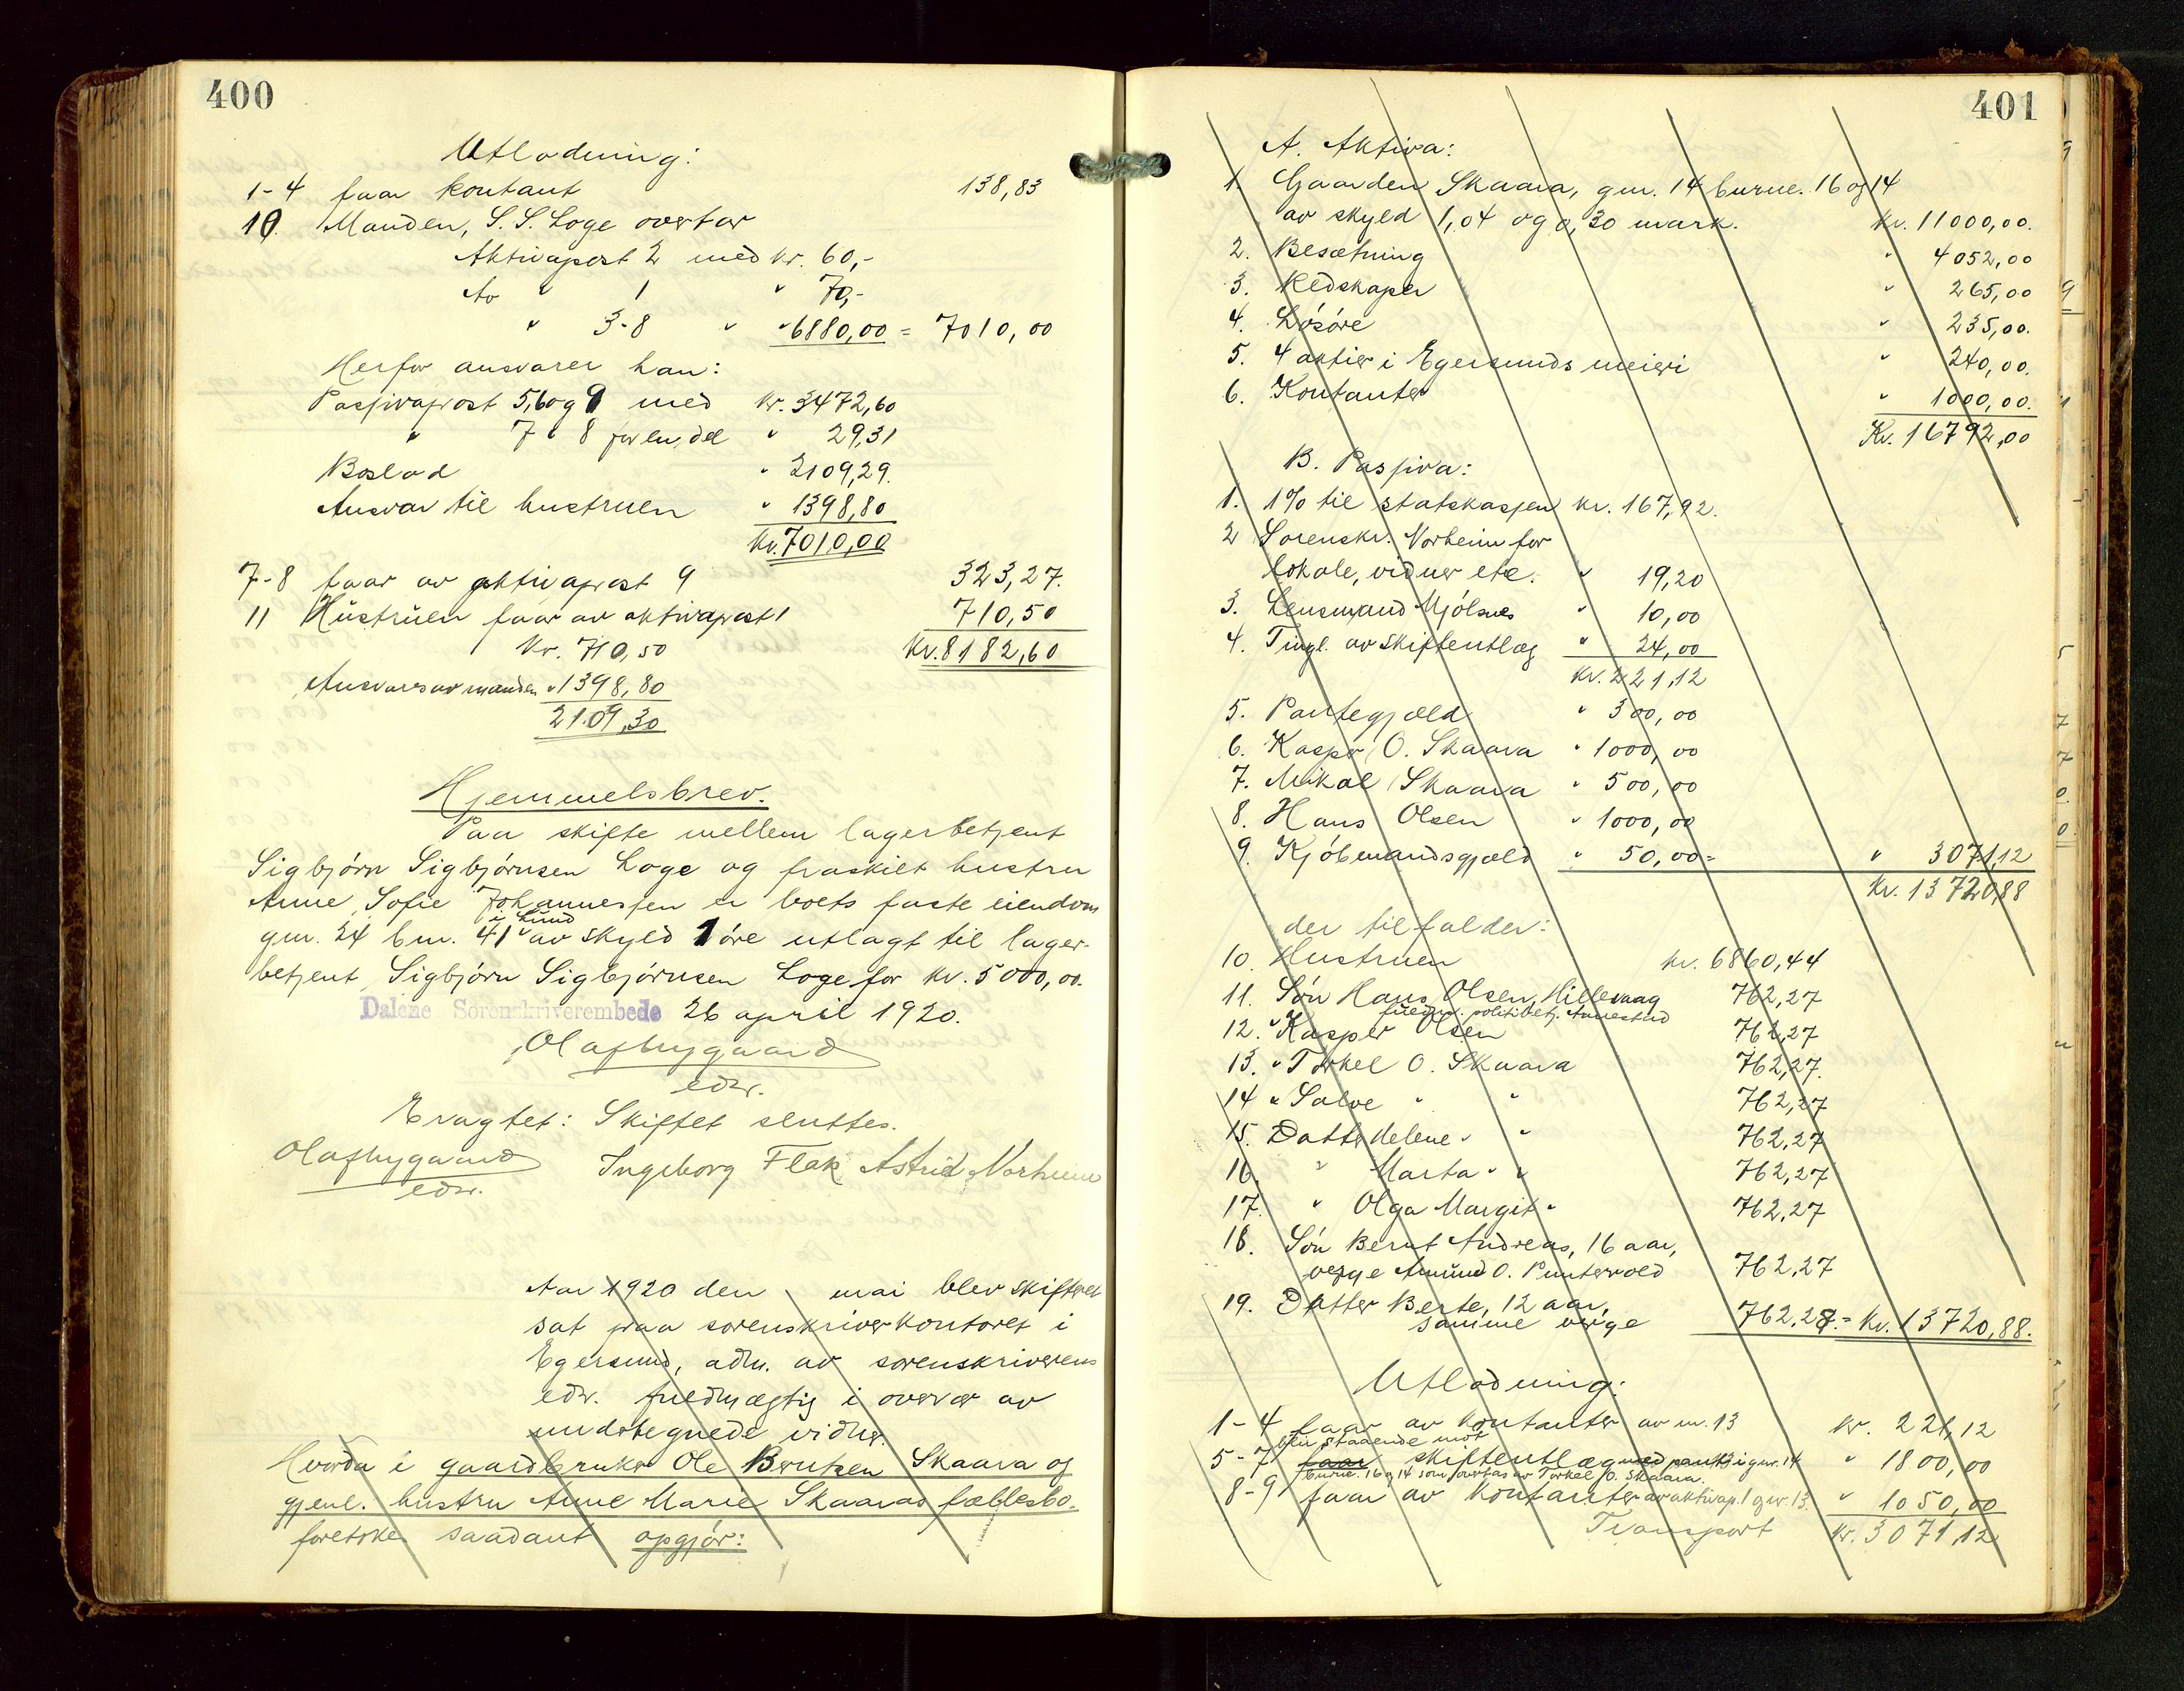 400
Utlodning:
1-4 faar kontant 138,83
10. Manden, S. S. Loge overtar
Aktivapost 2 med kr. 60,-
Av " 1 " 70,-
" 3-8 " " 6880,00 = 7010,00
Herfor ansvarer han:
Passivapost 5,6 og 9 med kr. 3472,60
" 7 " 8 for en del " 29,31
Boslod " 2109,29.
Ansvar til hustruen " 1398,80
Kr. 7010,00
7-8 faar av aktivapost 9 323,27.
11 Hustruen faar av aktivapost 1 710,50
Kr. 710,50 Kr. 8182,60
Ansvar av manden " 1398,80
2109,30
Hjemmelsbrev.
Paa skifte mellem lagerbetjent
Sigbjörn Sigbjörnsen Loge og fraskilt hustru
Anne Sofie Johannessen er boets faste eiendom
gnr. 24 bnr. 41 i Lund av skyld 1 öre utlagt til lager-
betjent Sigbjörn Sigbjörnsen Loge for kr. 5000,00.
Dalene Sorenskriverembede 26 april 1920.
Olaf Nygaard
edsv.
Eragtet: Skiftet sluttes.
Olaf Nygaard Ingeborg Flak Astrid Norheim
edsv.
Aar 1920 den mai blev skifteret
sat paa sorenskriverkontoret i
Egersund, adm. av sorenskriverens
edsv. fuldmægtig i overvær av
undertegnede vidner.
Hvorda i gaardbruker Ole Berntsen Skaara og
gjenl. hustru Anne Marie Skaaras fællesbo
foretokes saadant opgjör:
401
A. Aktiva:
1. Gaarden Skaara, gnr. 14 burne. 16 og 14
av skyld 1,04 og 0,30 mark. Kr. 11000,00.
2. Besætning " 4052,00
3. Redskaper " 265,00
4. Lösöre " 235,00.
5. 4 aktier i Egersunds meieri " 240,00.
6. Kontanter " 1000,00.
Kr. 16792,00
B. Passiva:
1. 1% til statskassen kr. 167,92.
2 Sorenskr. Norheim for
lokale, vidner etc. " 19,20
3. Lensmand Mjölsnes " 10,00
4. Tingl. av skifteutlæg " 24,00
Kr. 221,12
5. Pantegjæld " 300,00
6. Kasper O. Skaara " 1000,00
7. Mikal Skaara " 500,00
8. Hans Olsen " 1000,00
9. Kjöbmandsgjæld " 50,00 = " 3071,12
Kr. 13720,88
der tilfalder:
10. Hustruen kr. 6860,44
11. Sön Hans Olsen, Hillevaag 762,27
12. " Kasper Olsen 762,27
13. " Torkel O. Skaara 762,27.
14 " Salve " " 762,27
15. Datter Helene " " 762,27
16. " Marta " " 762,27
17. " Olga Margit " 762,27
18. Sön Bernt Andreas, 16 aar,
verge Amund O. Puntervold 762,27
19. Datter Berte, 12 aar,
samme verge 762,28. = Kr. 13720,88.
Utlodning:
1-4 faar av kontanter av nr. 13 Kr. 221,12
blir staaende mot
5-7 faar skifteutlæg med pant i gnr. 14 " 1800,00
burne. 16 og 14 som overtas av Torkel O. Skaara.
8-9 faar av kontanter av aktivap. 1 gnr. 13. " 1050,00
Transport Kr. 3071,12